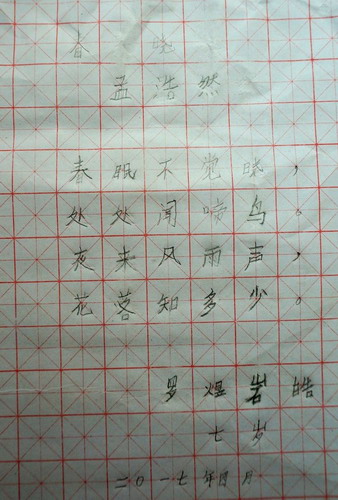 春晓
孟浩然
春眠不觉晓，
处处闻啼鸟。
夜来风雨声，
花落知多少。
罗煜岩皓
七岁
二〇一七年月月